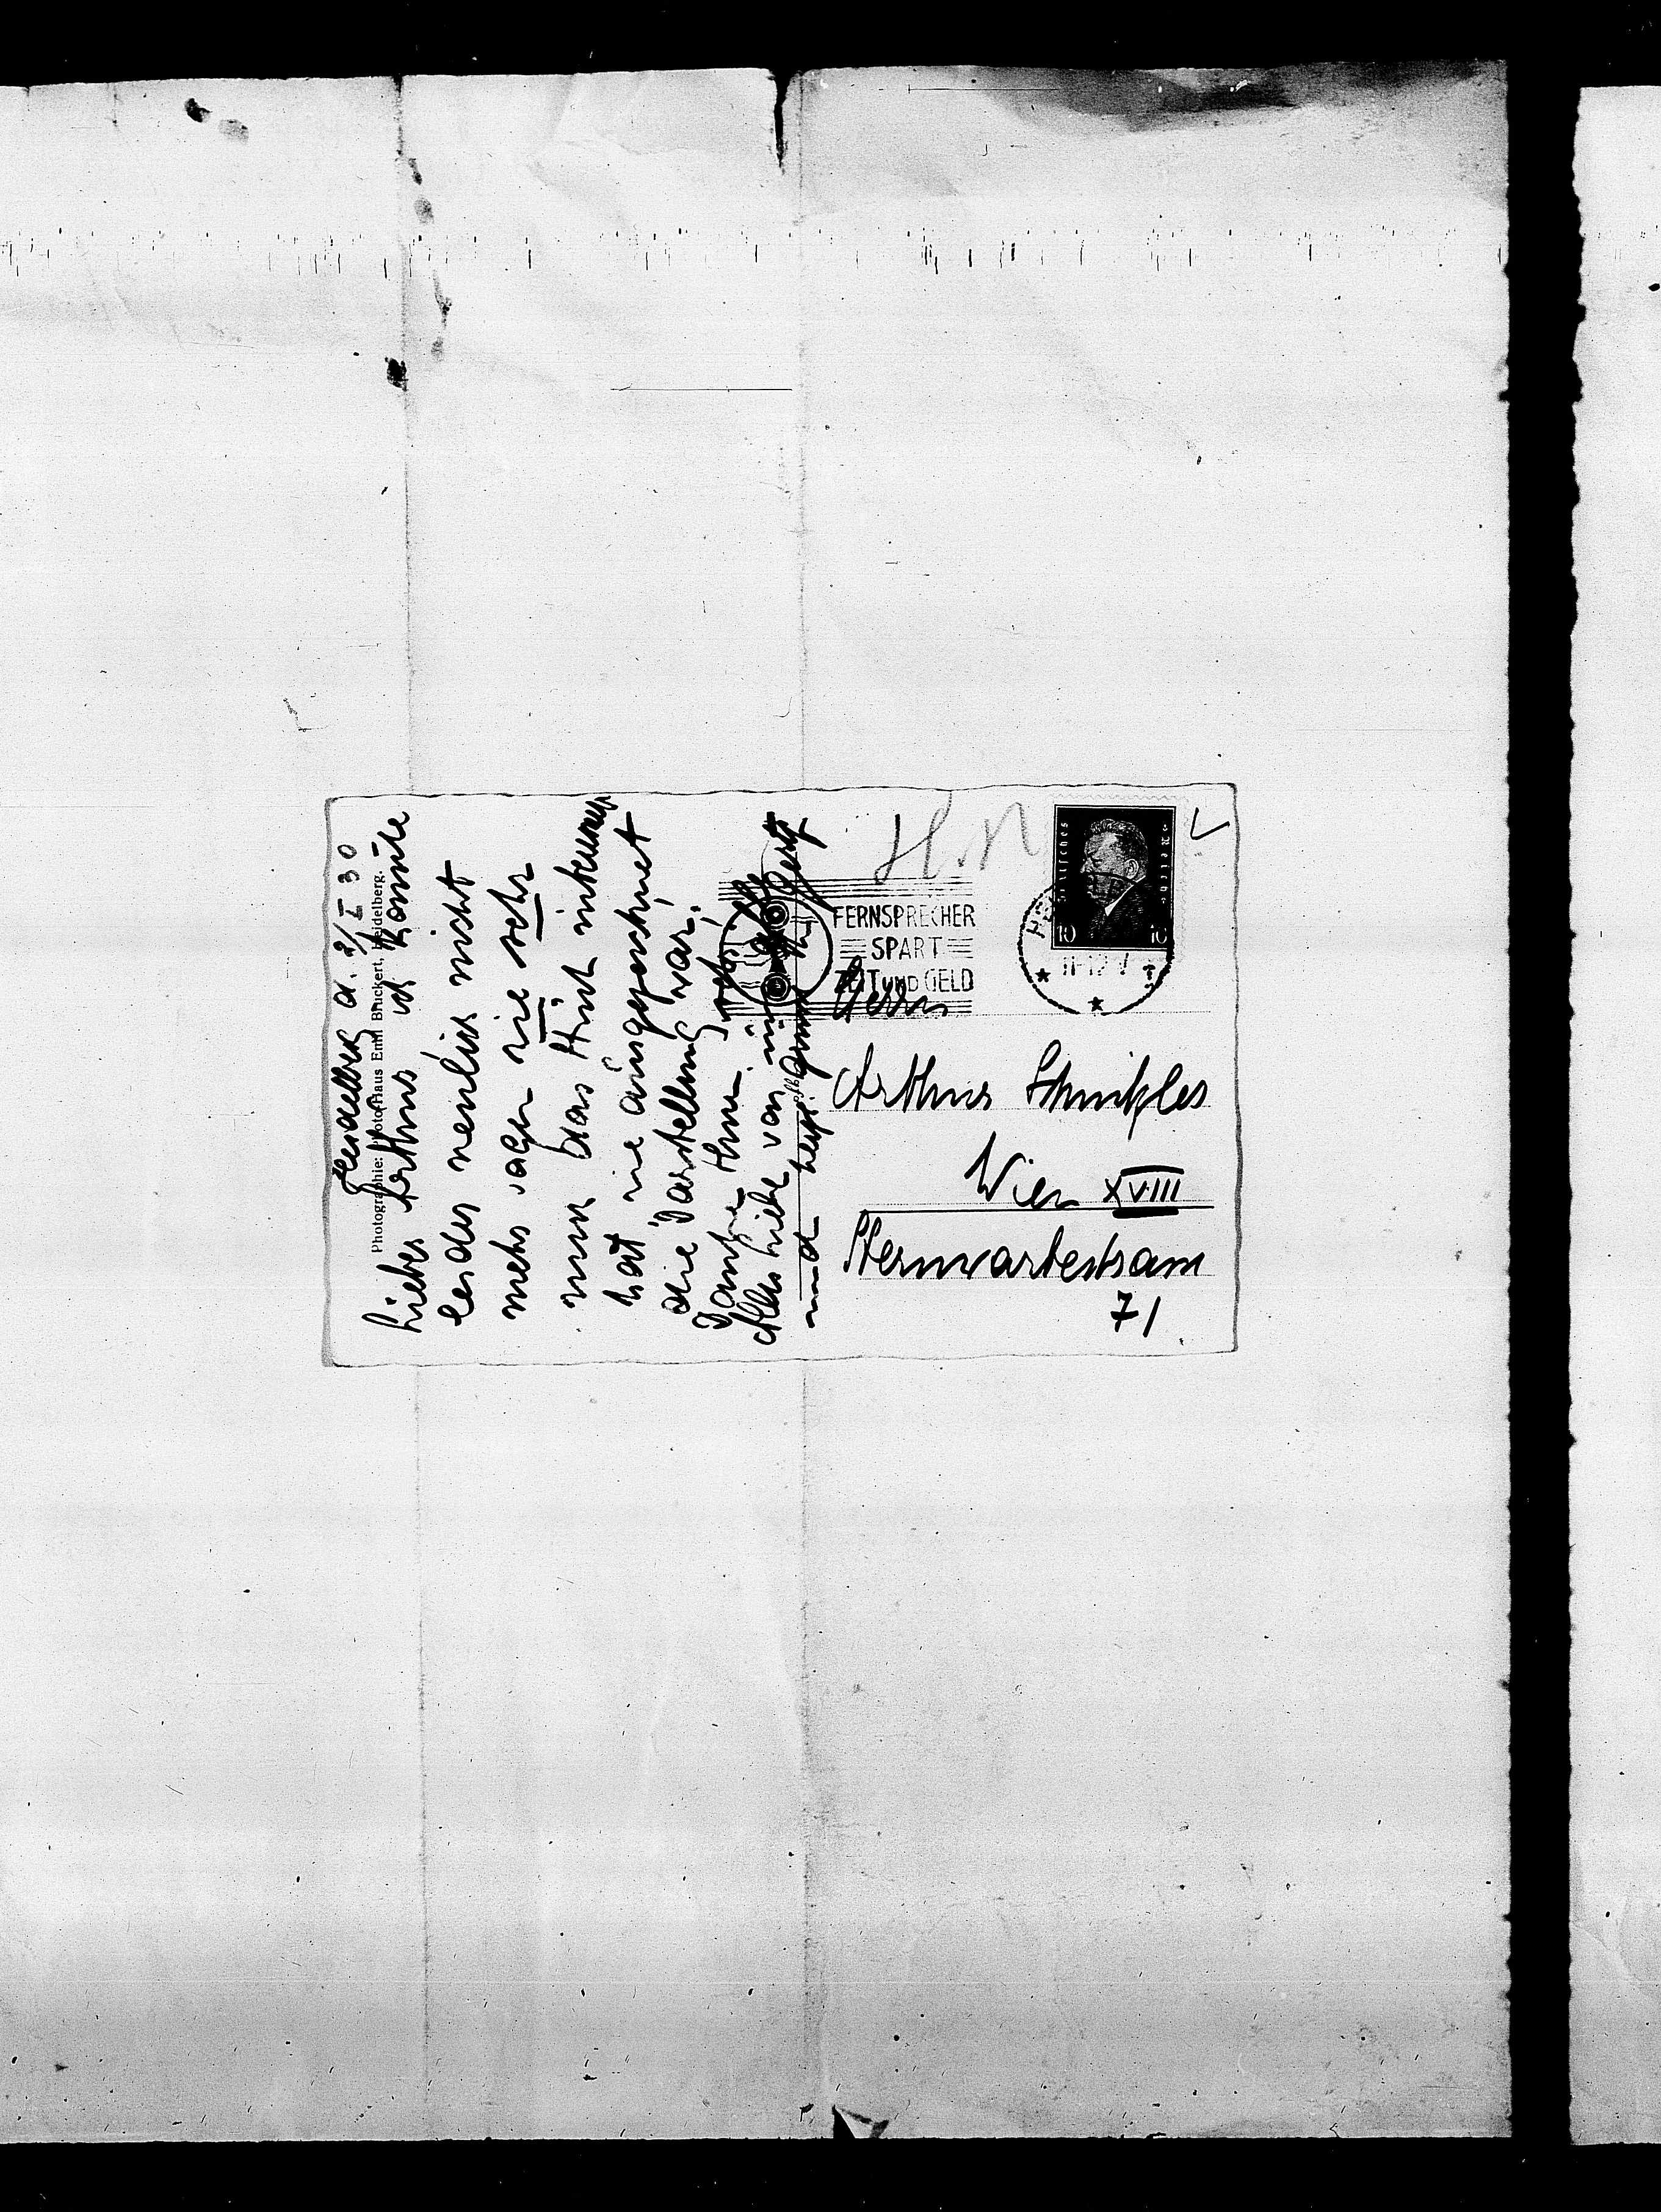 Heidelberg d. 2/I 30
Photographie: Photohaus Emil Bruckert, Heidelberg.
Lieber Arthur, ich konnte
leider neulich nicht
mehr sagen wie sehr
mich das Stück
hat wie ausgezeichnet
die Darstellung war.
Danke Ihnen sehr.
Alles Liebe von
und
H. N
Deutsches Reich
10 10
FERNSPRECHER
SPART
ZEIT UND GELD
11-12 V
Herrn
Arthur Schnitzler
Wien XVIII
Sternwartestrasse
71